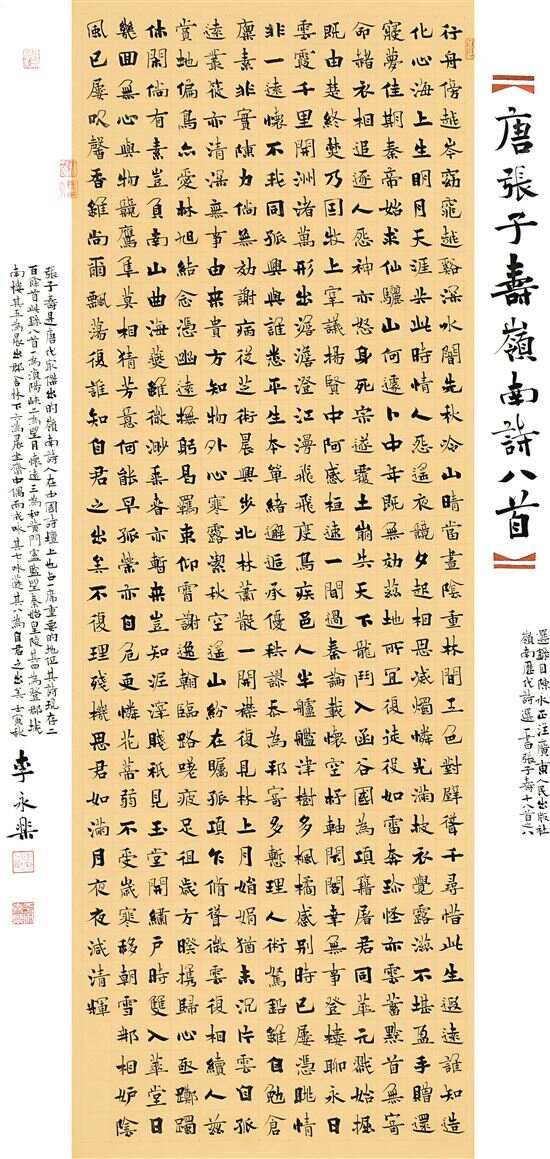 唐張子壽嶺南詩八首
選錄自陳永正注廣東人民出版社
嶺南歷代詩選一書張子壽十八首之八
行舟傍越岑窈窕越谿深水闇先秋冷山晴當晝陰重林間五色對壁聳千尋惜此生遐遠誰知造
化心海上生明月天涯共此時情人怨遙夜競夕起相思滅燭憐光滿披衣覺露滋不堪盈手贈還
寢夢佳期秦帝始求仙驪山何遽卜中年既無効茲地所宜復徒役如雷奔珍怪亦雲蓄黔首無寄
命赭衣相追逐人怨神亦怒身死宗遂覆土崩失天下龍鬥入函谷國為項籍屠君同華元戮始掘
既由楚終焚乃因牧上宰議揚賢中阿感桓速一聞過秦論載懷空杼軸閑閣幸無事登樓聊永日
雲霞千里開洲渚萬形出澹澹澄江漫飛飛度鳥疾邑人半艫艦津樹多楓橘感別時已屢憑眺情
非一遠懷不我同孤興與誰悉平生本單緒邂逅承優秩謬忝為邦寄多慙理人術駑鉛雖自勉倉
廩素非實陳力倘無効謝病從芝術晨興步北林蕭散一開襟復見林上月娟娟猶未沉片雲自孤
遠叢篠亦清深無事由來貴方知物外心寒露潔秋空遙山紛在矚孤頂乍脩聳微雲復相續人茲
賞地偏鳥亦愛林旭結念憑幽遠撫躬曷羈束仰霄謝逸翰臨路嗟疲足徂歲方暌攜歸心亟躑躅
休閑倘有素豈負南山曲海燕雖微眇乘春亦暫來豈知泥滓賤祇見玉堂開繡戶時雙入華堂日
幾回無心與物競鷹隼莫相猜芳意何能早孤榮亦自危更憐花蒂弱不受歲寒移朝雪那相妒陰
風已屢吹馨香雖尚爾飄蕩復誰知自君之出矣不復理殘機思君如滿月夜夜減清輝
張子壽是唐代最傑出的嶺南詩人在中國詩壇上也占一席重要的地位其詩現存二
百餘首此錄八首一為湞陽峽二為望月懷遠三為和黃門盧監望秦始皇陵其四為登郡城
南樓其五為晨出郡舍林下六為晨坐齋中偶而成咏其七咏燕其八為自君之出矣壬寅秋
李永樂